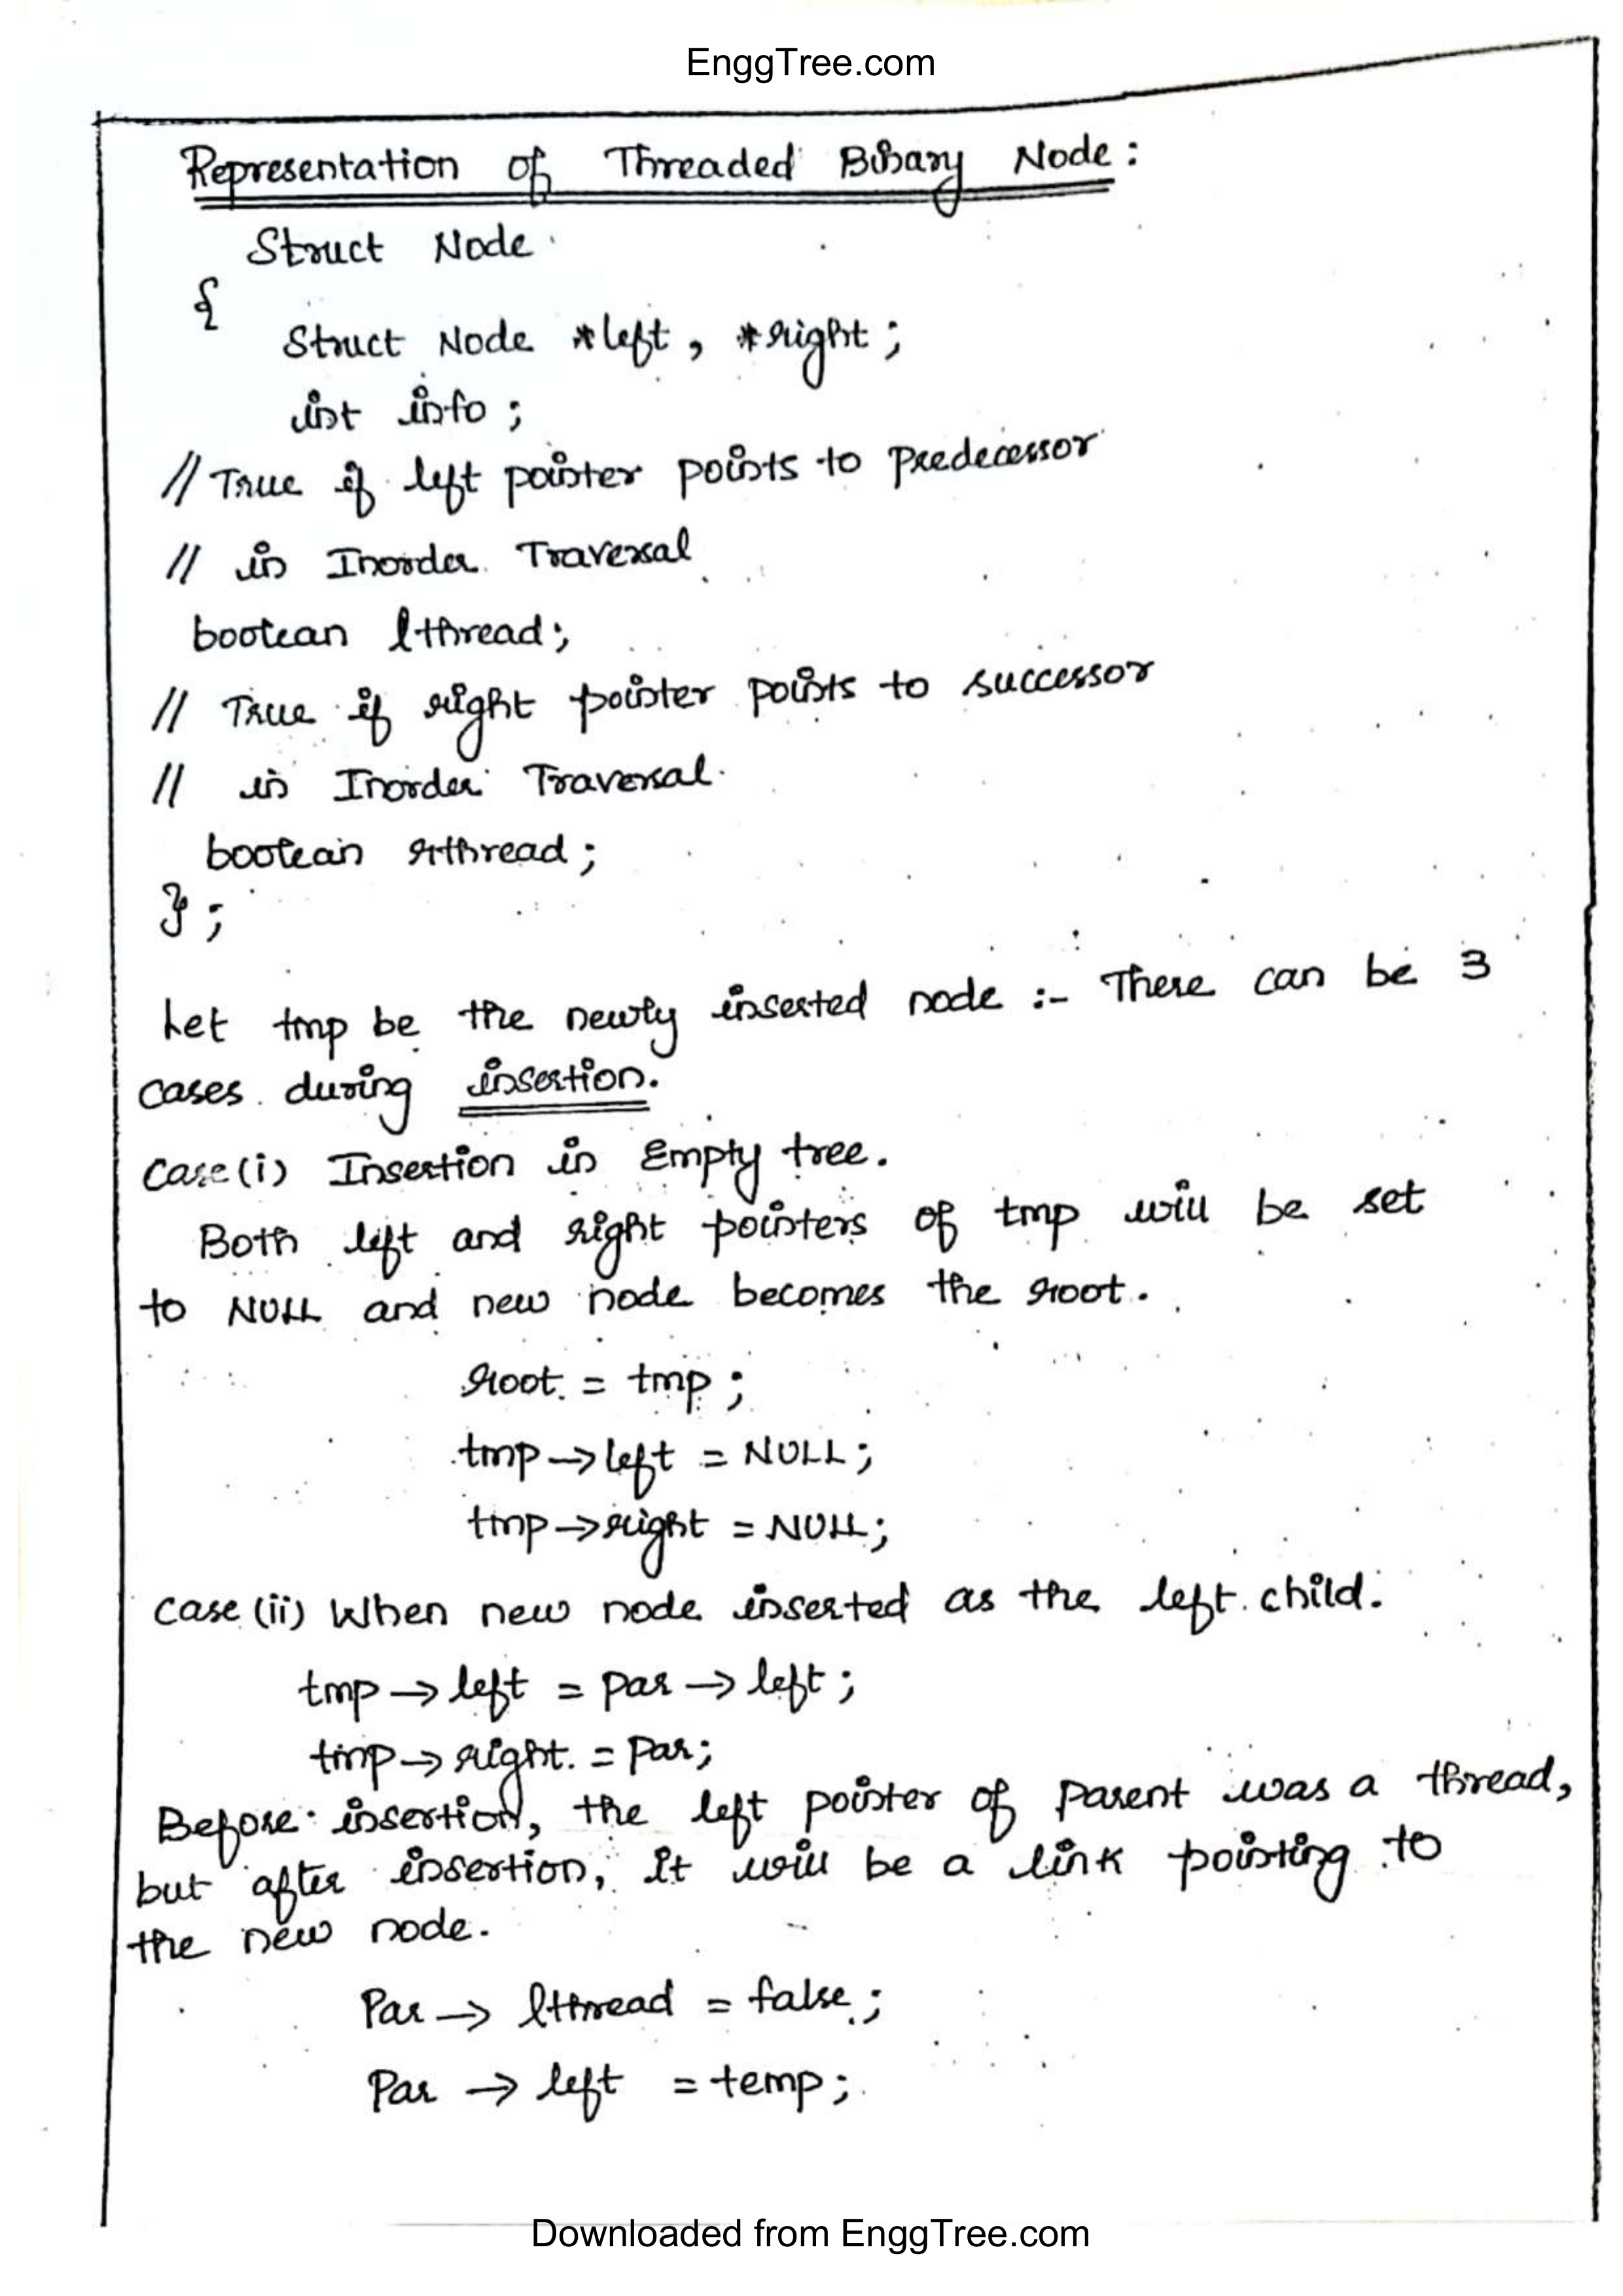 EnggTree.com
Representation of Threaded Binary Node:
Struct Node
{
Struct Node *left, *right;
int info;
// True if left pointer points to predecessor
// in Inorder Traversal
boolean lthread;
// True if right pointer points to successor
// in Inorder Traversal.
boolean rthread;
};
Let tmp be the newly inserted node :- There can be 3
cases during insertion.
Case(i) Insertion in Empty tree.
Both left and right pointers of tmp will be set
to NULL and new node becomes the root.
root = tmp;
tmp→left = NULL;
tmp→right = NULL;
Case (ii) When new node inserted as the left child.
tmp→left = par→left;
tmp→right = par;
Before insertion, the left pointer of parent was a thread,
but after insertion, it will be a link pointing to
the new node.
Par→ lthread = false;
Par → left = temp;
Downloaded from EnggTree.com